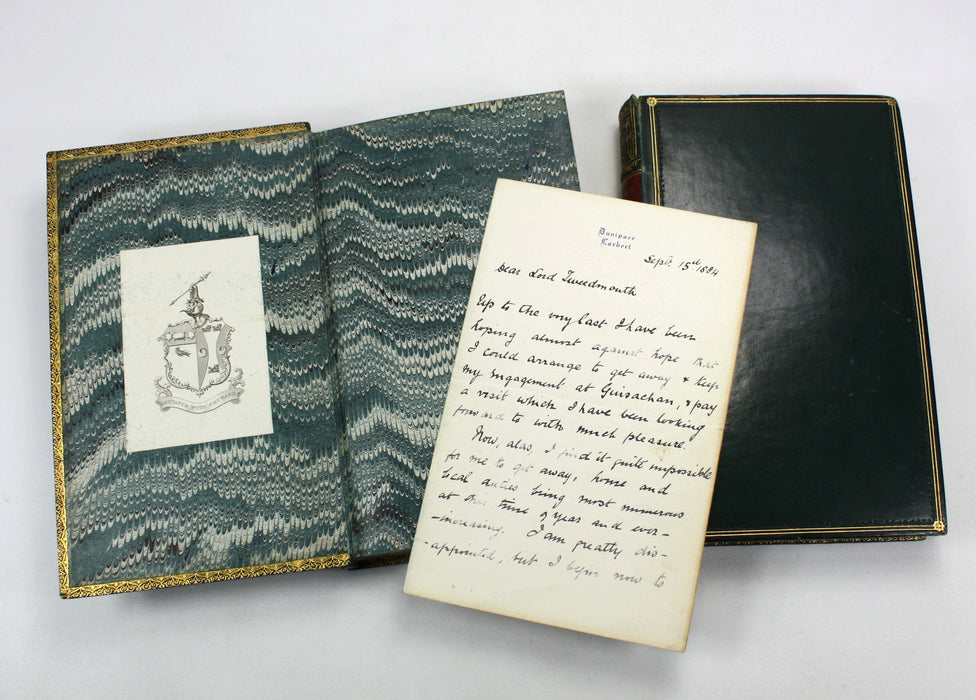 Dunipace
Larbert
Sept. 15th 1884
Dear Lord Tweedmouth
Up to the very last I have been
hoping almost against hope that
I could arrange to get away & keep
my engagement at Guisachan, & pay
a visit which I have been looking
forward to with much pleasure.
Now, alas, I find it quite impossible
for me to get away, home and
local duties being most numerous
at this time of year and ever-
-increasing. I am greatly dis-
-appointed, but I begin now to